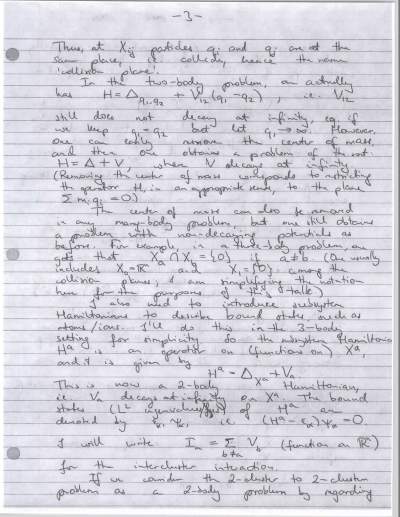 -3-
Thus, at Xij particles qi and qj are at the
same place, i.e. collide, hence the name
'collision plane'.
In the two-body problem, one actually
has H = Δq1,q2 + V12(q1-q2), i.e. V12
still does not decay at infinity, eg. if
we keep q1=q2 but let q1→∞. However,
one can easily remove the center of mass,
and then one obtains a problem of the sort
H = Δ + V, where V decays at infinity.
(Removing the center of mass corresponds to restricting
the operator H, in an appropriate sense, to the plane
Σ mi qi = 0)
The center of mass can also be removed
in any many-body problem, but one still obtains
a problem with non-decaying potentials as
before. For example, in a three-body problem, one
gets that Xa ∩ Xb = {0} if a≠b. (One usually
includes X0 = ℝn and X1 = {0} among the
collision planes; I am simplifying the notation
here for the purposes of talk)
I also need to introduce subsystem
Hamiltonians to describe bound states, such as
atoms/ions. I'll do this in the 3-body
setting for simplicity. So the subsystem Hamiltonian
Ha is an operator on (functions on) Xa,
and it is given by
Ha = ΔXa + Va.
This is now a 2-body Hamiltonian,
i.e. Va decays at infinity on Xa. The bound
states (L2 eigenvalues) of Ha are
denoted by εα, ψα, i.e. (Ha - εα)ψα = 0.
I will write Ia = Σ b≠a Vb (function on ℝn)
for the intercluster interaction.
If we consider the 2-cluster to 2-cluster
problem as a 2-body problem by regarding